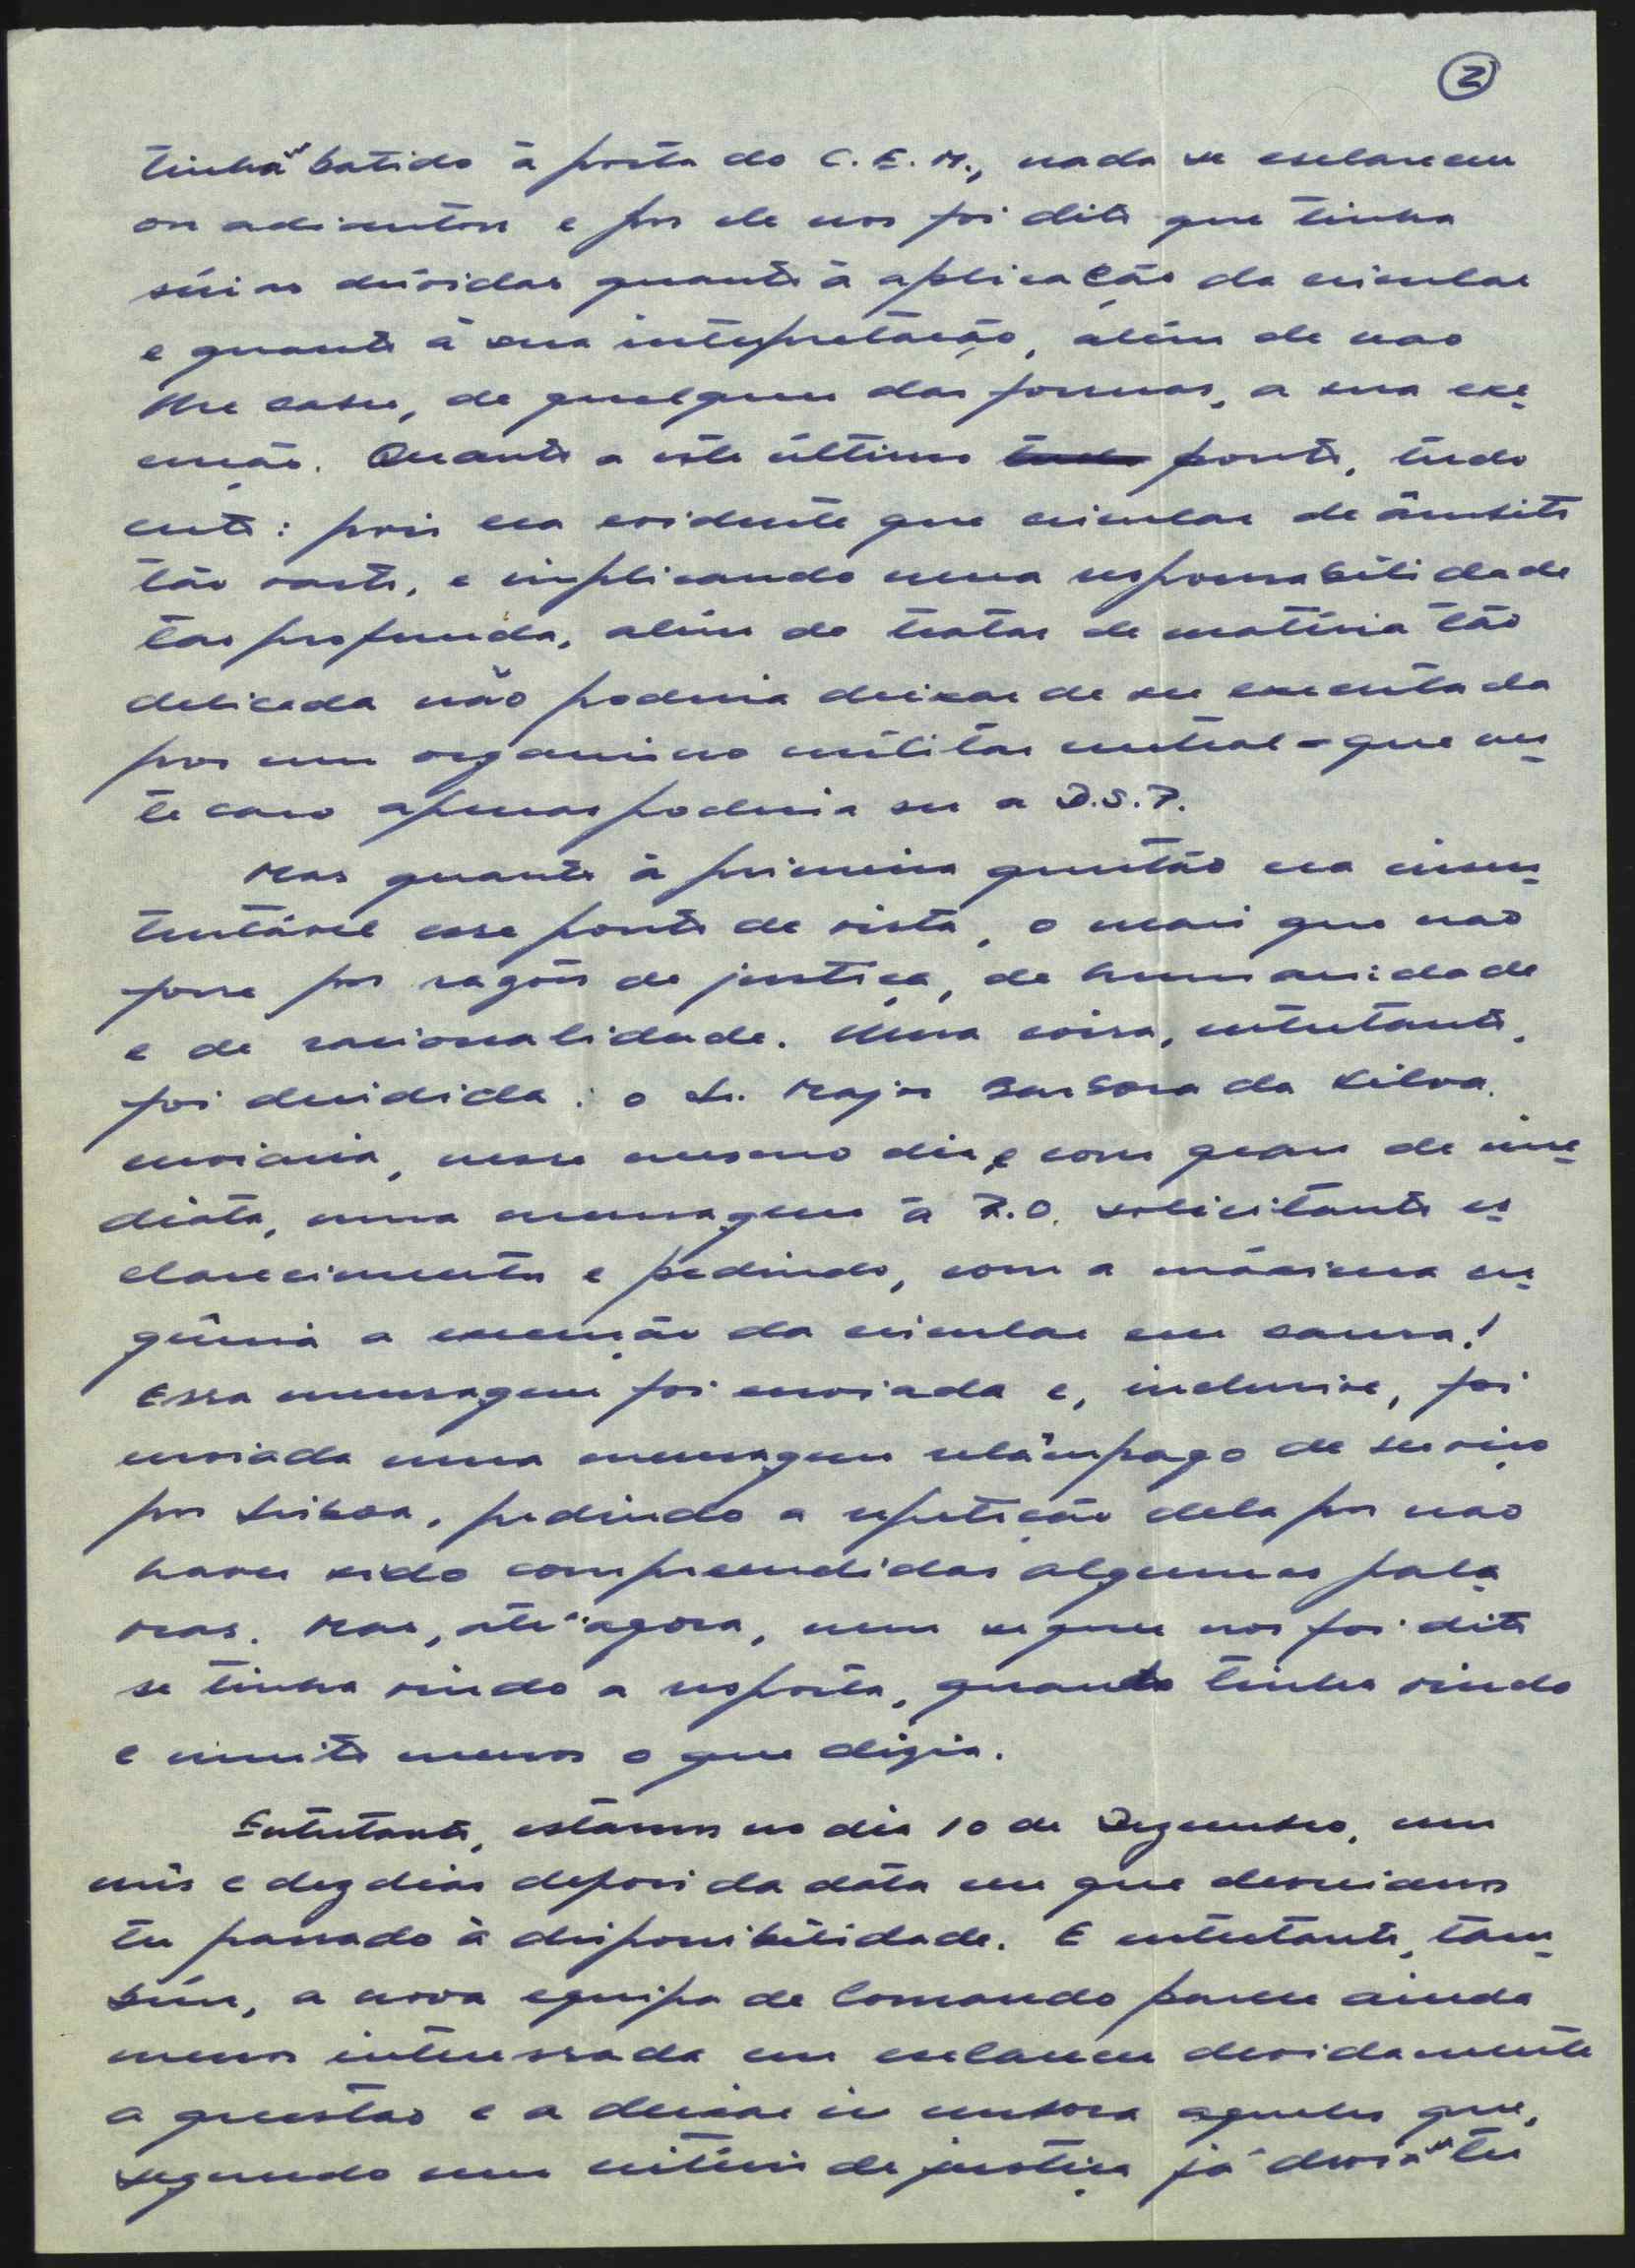 2
tinham batido à porta do C.E.M., nada se esclareceu
ou adiantou e por ele nos foi dito que tinha
sérias dúvidas quanto à aplicação da circular
e quanto à sua interpretação, além de nao
lhe caber, de qualquer das formas, a sua exe-
cução. Quanto a este último ponto, tudo
certo: pois era evidente que circular de âmbito
tão vasto, e implicando uma responsabilidade
tao profunda, além de tratar de matéria tão
delicada não poderia deixar de ser executada
por um organismo militar central - que nes-
te caso apenas poderia ser a D.S.P.
Mas quanto à primeira questão era insus-
tentável esse ponto de vista, o mais que nao
fosse por razões de justiça, de humanidade
e de racionalidade. Uma coisa, entretanto,
foi decidida: o Sr. Major Barbosa da Silva
enviaria, nesse mesmo dia e com grau de ime-
diata, uma mensagem à R.O. solicitando es-
clarecimentos e pedindo, com a máxima ur-
gência a execução da circular em causa!
Essa mensagem foi enviada e, inclusive, foi
enviada uma mensagem relâmpago de serviço
por Lisboa, pedindo a repetição dela por nao
haver sido compreendidas algumas pala-
vras. Mas, até agora, nem sequer nos foi dito
se tinha vindo a resposta, quando tinha vindo
e muito menos o que dizia.
Entretanto, estamos no dia 10 de Dezembro, um
mês e dez dias depois da data em que deveríamos
ter passado à disponibilidade. E entretanto, tam-
bém, a nova equipa de Comando parece ainda
menos interessada em esclarecer devidamente
a questao e a deixar ir embora aqueles que,
segundo um critério de justiça já deviam ter